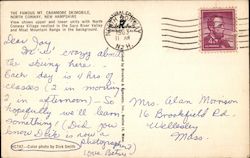 THE FAMOUS MT. CRANMORE SKIMOBILE,
NORTH CONWAY, NEW HAMPSHIRE
View shows upper and lower units with North
Conway Village nestled in the Saco River Valley
and Moat Mountain Range in the background.
N.H.
4¢
Dear Joy,
I'm crazy about
the skiing here.
Each day is 4 hrs of
classes (2 in morning
2 in afternoon) - So
hopefully we'll learn
something! (Did you
know Dick is now the
photographer?)
Love, Betsy
Mrs. Alan Morrison
16 Brookfield Rd.
Wellesley
Mass.
Color photo by Dick Smith